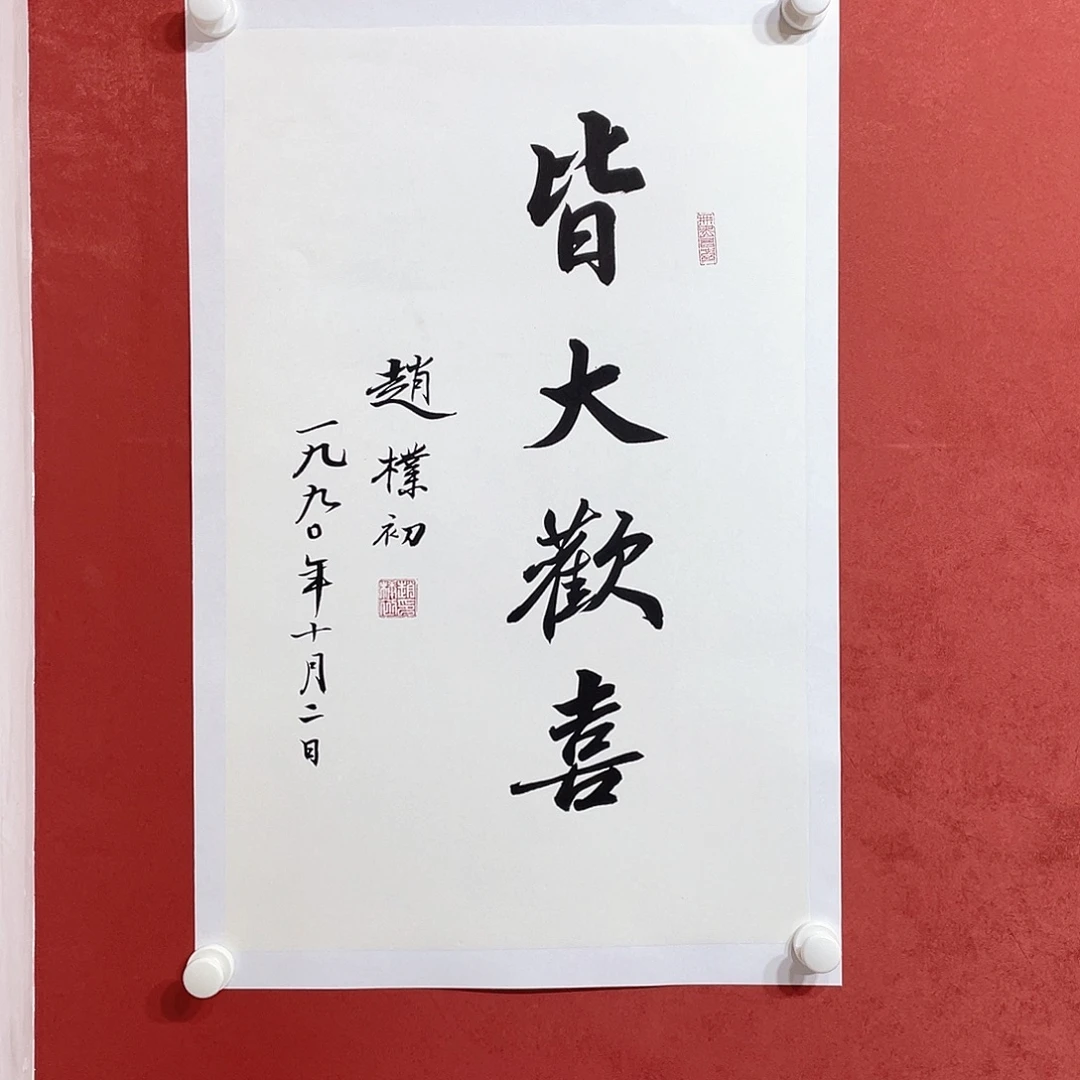 皆大歡喜
趙樸初
一九九〇年十月二日